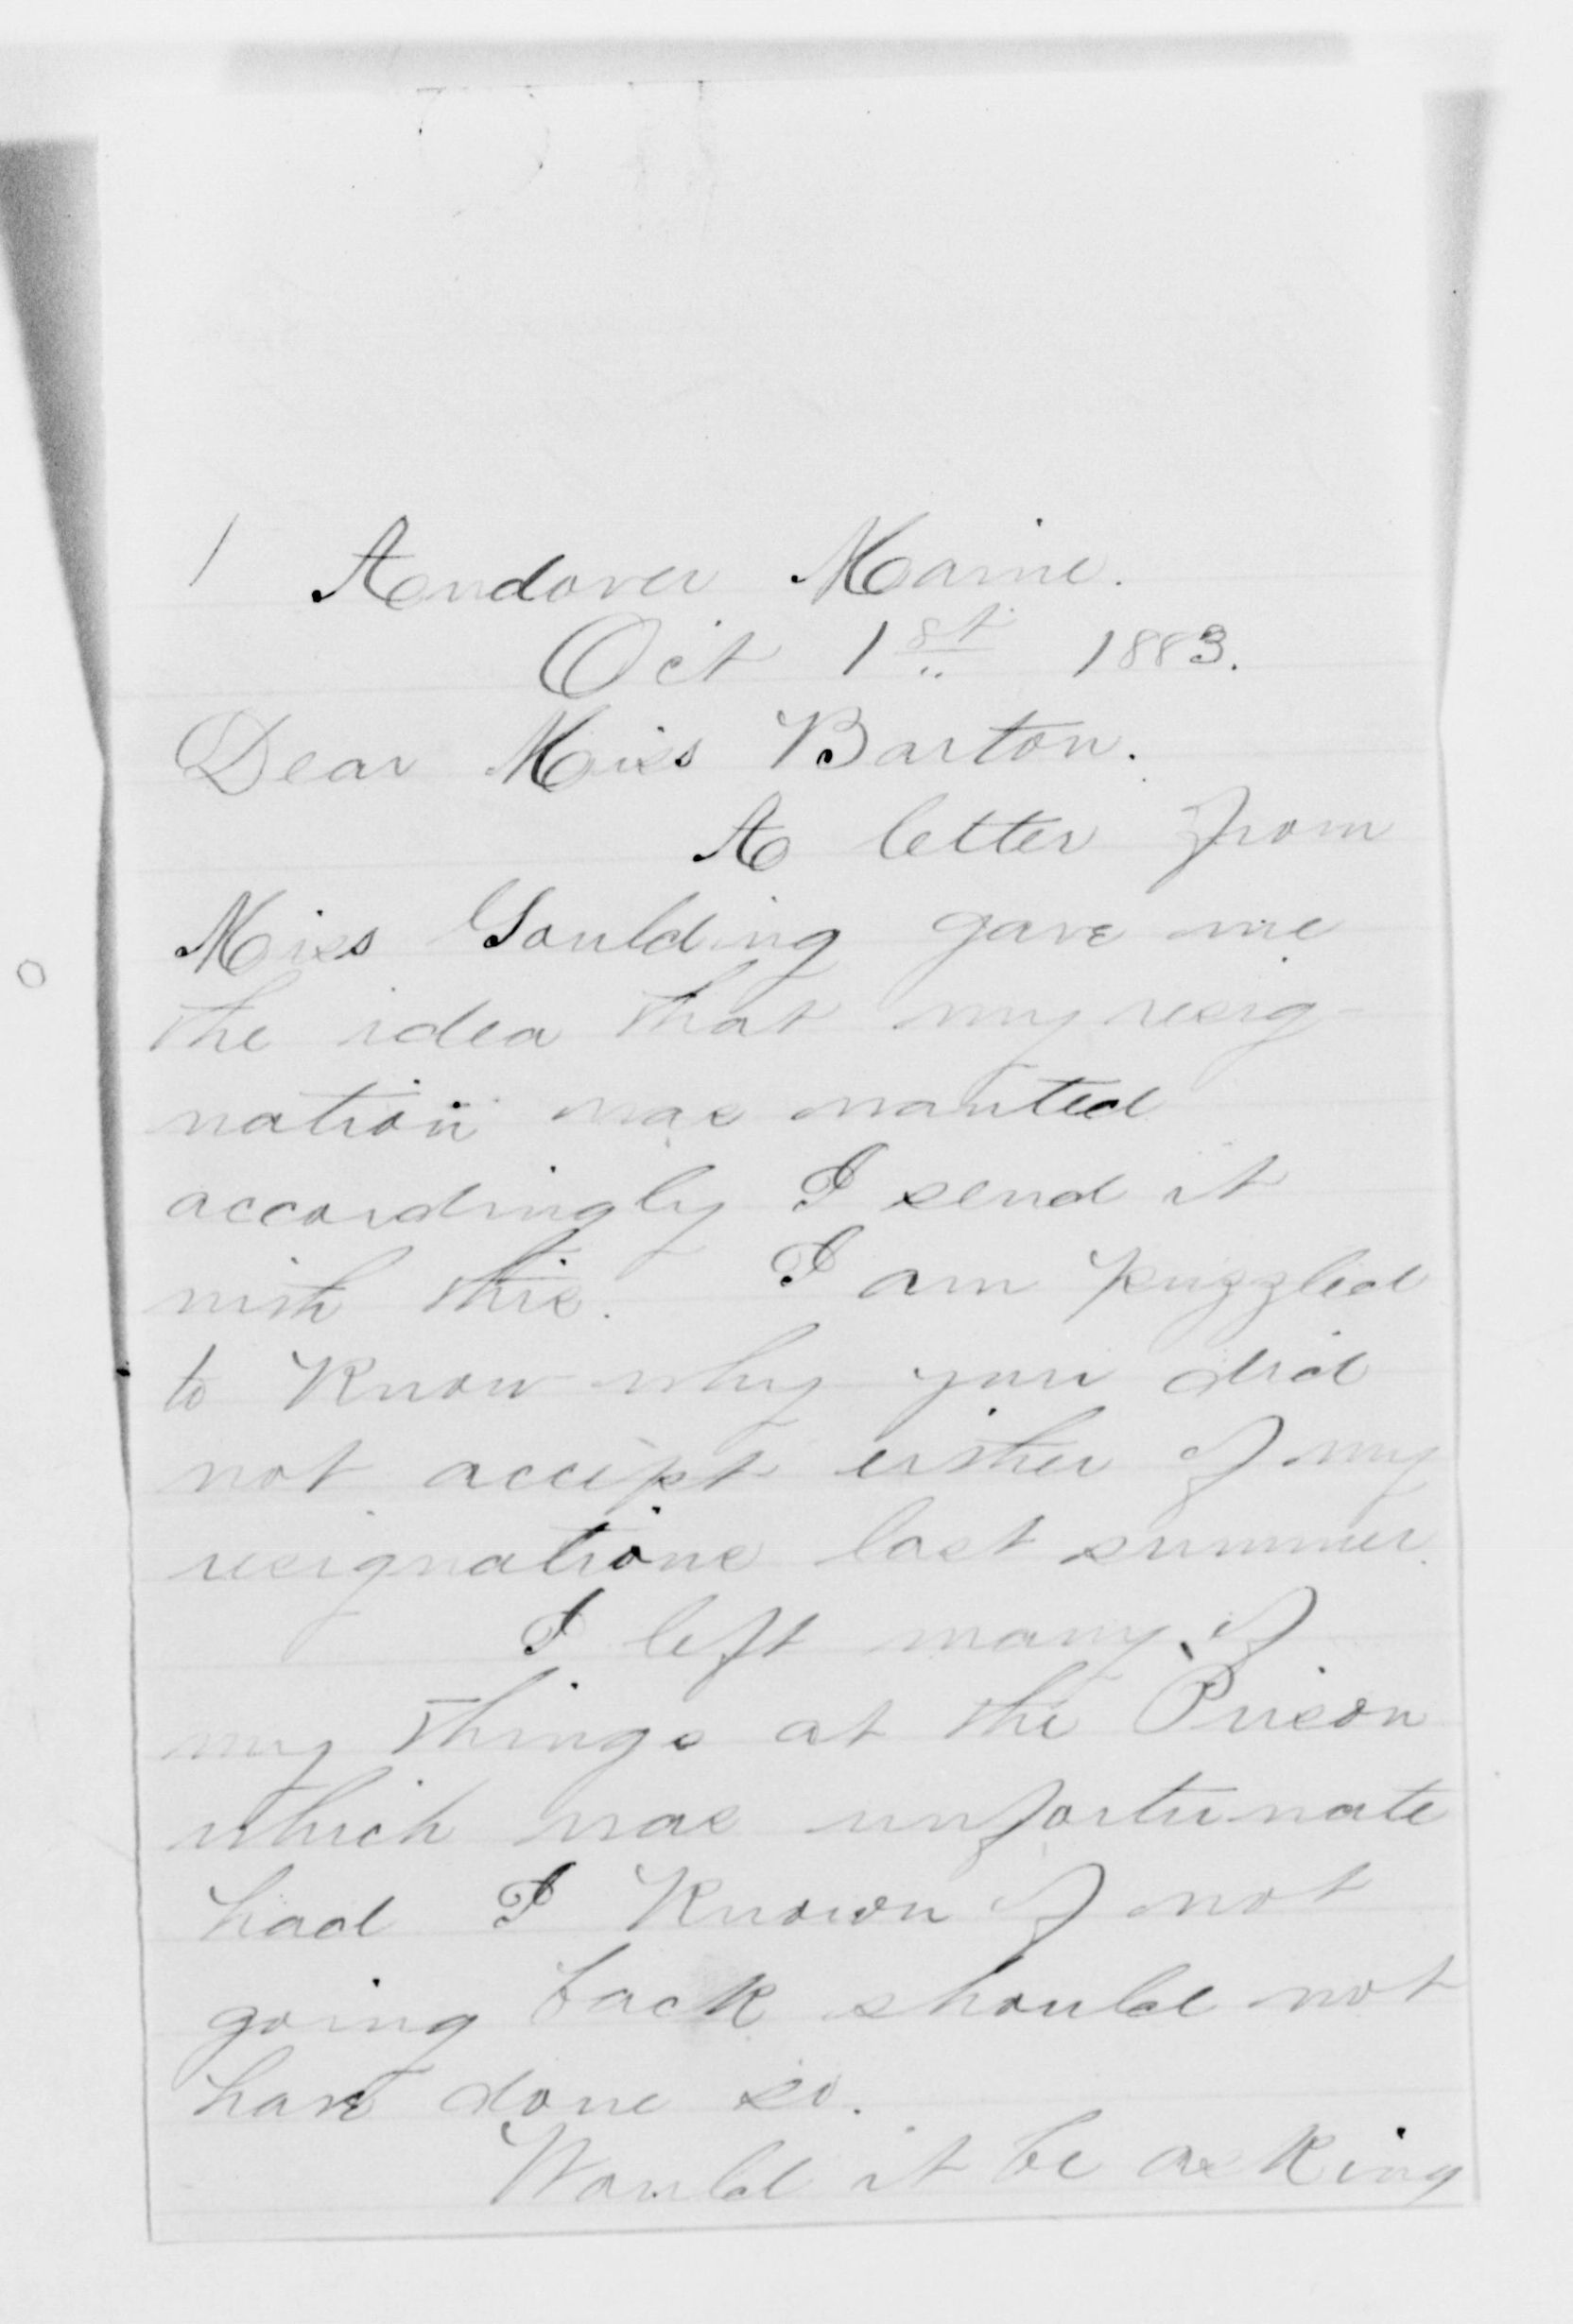 1 Andover Maine.
Oct 1st 1883.
Dear Miss Barton.
A letter from
Miss Goulding gave me
the idea that my resig-
nation was wanted
accordingly I send it
with this. I am puzzled
to know why you did
not accept either of my
resignations last summer.
I left many of
my things at the Prison
which was unfortunate
had I known of not
going back should not
have done so.
Would it be asking